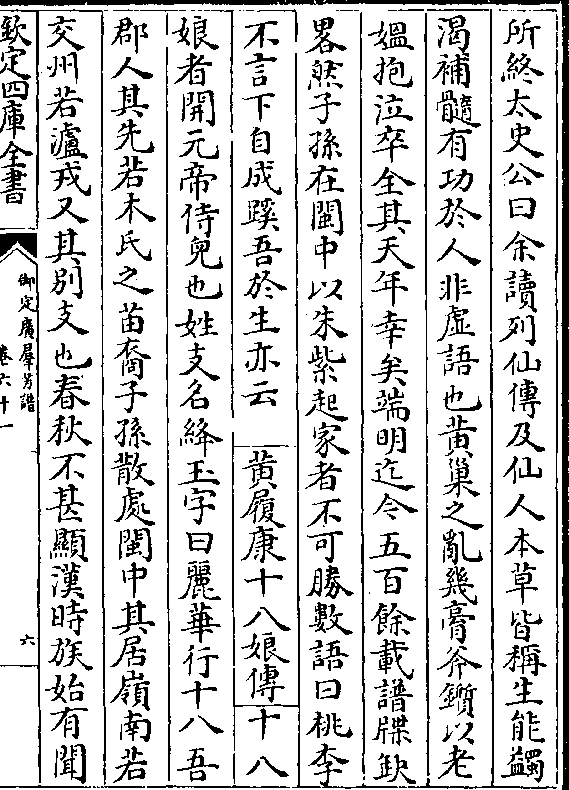 所終太史公曰余讀列仙傳及仙人本草皆稱生能蠲
渴補髓有功於人非虛語也黄巢之亂幾膏斧鑕以老
媪抱泣卒全其天年幸矣端明迄今五百餘載譜牒缺
畧然子孫在閩中以朱紫起家者不可勝數語曰桃李
不言下自成蹊吾於生亦云 黄履康十八娘傳十八
娘者開元帝侍兒也姓支名絳玉字曰麗華行十八吾
郡人其先若木氏之苗裔子孫散處閩中其居嶺南若
交州若瀘戎又其别支也春秋不甚顯漢時族始有聞
欽定四庫全書
御定廣羣芳譜
卷六十一
六